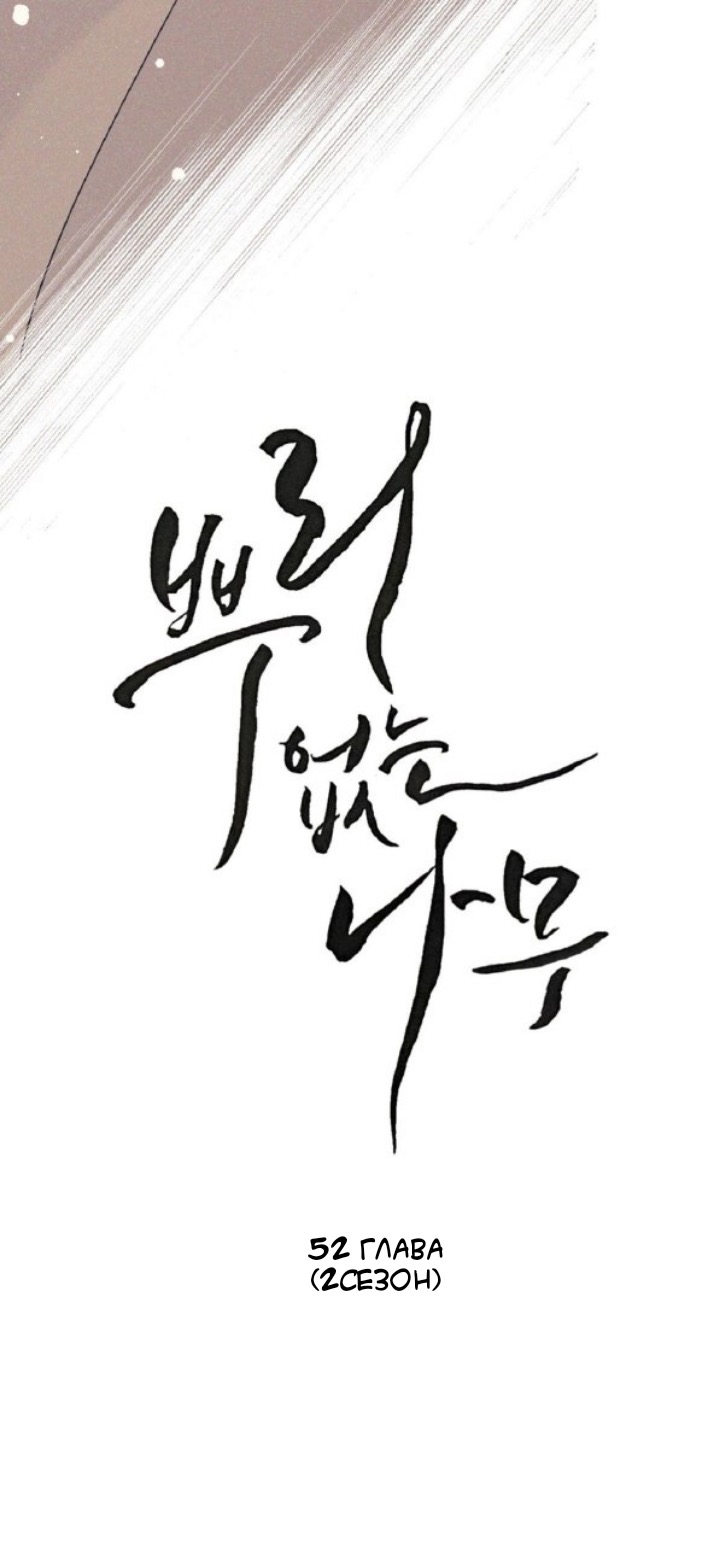 뿌리
없는
나무
52 ГЛАВА
(2СЕЗОН)